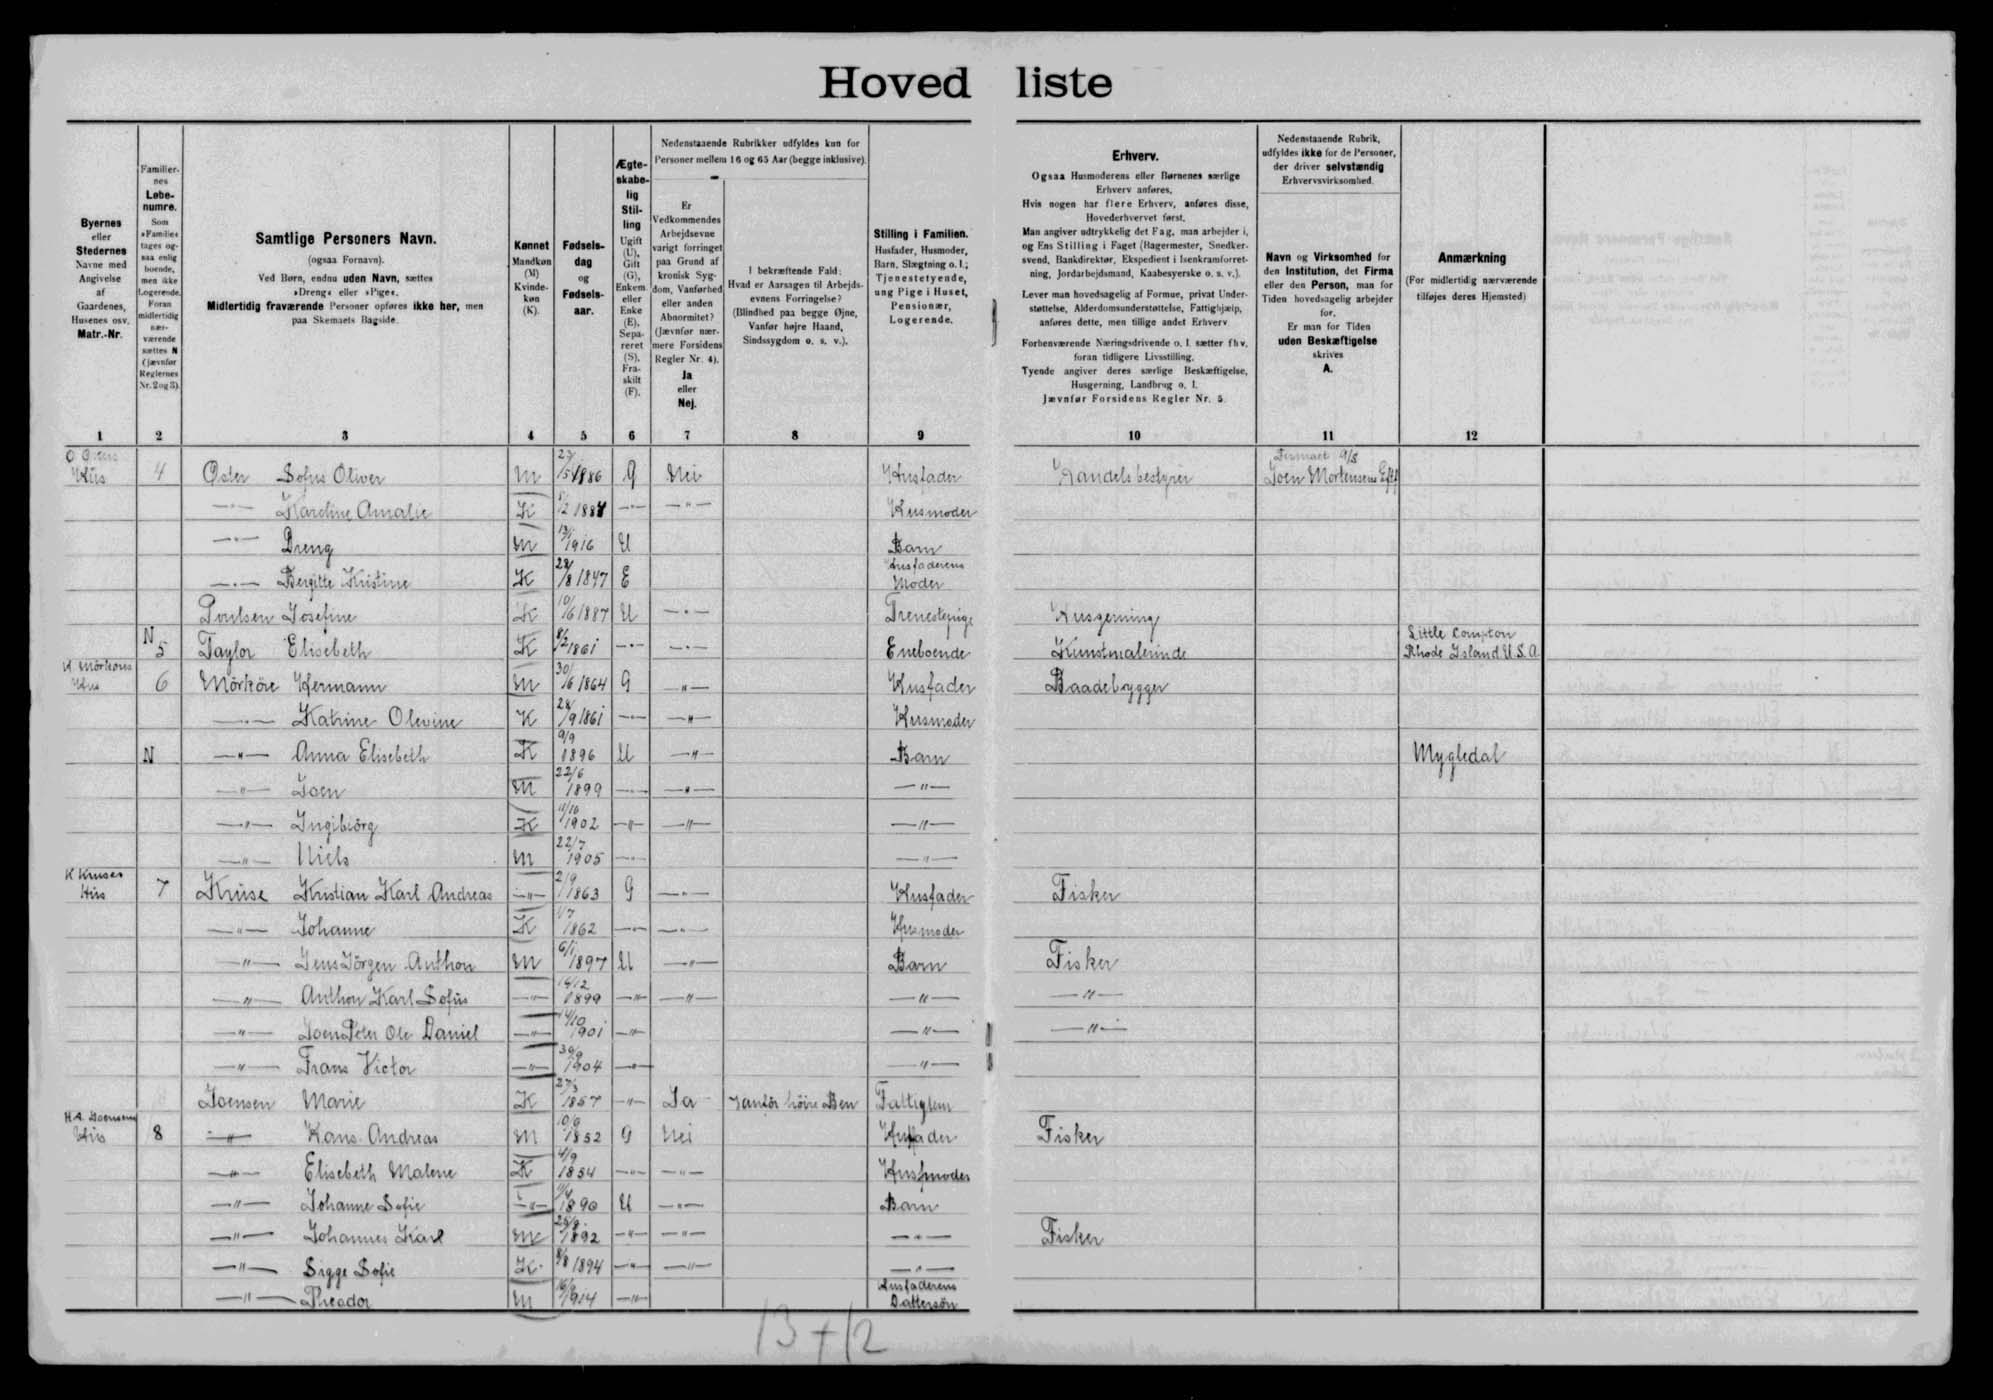 Hovedliste
Byernes eller Stedernes Navne med Angivelse af Gaardenes, Husenes osv. Matr.-Nr.
Familiernes Løbenumre. Som »Familie« tages ogsaa enlig boende, men ikke Logerende. Foran midlertidig nærværende sættes N (jævnfør Reglernes Nr. 2 og 3).
Samtlige Personers Navn.
(ogsaa Fornavn).
Ved Børn, endnu uden Navn, sættes
»Dreng« eller »Pige«.
Midlertidig fraværende Personer opføres ikke her, men
paa Skemaets Bagside.
Kønnet Mandkøn (M) Kvindekøn (K).
Fødselsdag og Fødselsaar.
Ægteskabelig Stilling Ugift (U), Gift (G), Enkem. eller Enke (E), Separeret (S), Fraskilt (F).
Nedenstaaende Rubrikker udfyldes kun for
Personer mellem 16 og 65 Aar (begge inklusive).
Er Vedkommendes Arbejdsevne varigt forringet paa Grund af kronisk Sygdom, Vanførhed eller anden Abnormitet? (Jævnfør nærmere Forsidens Regler Nr. 4). Ja eller Nej.
I bekræftende Fald: Hvad er Aarsagen til Arbejdsevnens Forringelse? (Blindhed paa begge Øjne, Vanfør højre Haand, Sindssygdom o. s. v.).
Stilling i Familien. Husfader, Husmoder, Barn, Slægtning o. l.; Tjenestetyende, ung Pige i Huset, Pensionær, Logerende.
Erhverv.
Ogsaa Husmoderens eller Børnenes særlige
Erhverv anføres,
Hvis nogen har flere Erhverv, anføres disse,
Hovederhvervet først.
Man angiver udtrykkelig det Fag, man arbejder i,
og Ens Stilling i Faget (Bagermester, Snedkersvend, Bankdirektør, Ekspedient i Isenkramforretning, Jordarbejdsmand, Kaabesyerske o. s. v.).
Lever man hovedsagelig af Formue, privat Understøttelse, Alderdomsunderstøttelse, Fattighjælp,
anføres dette, men tillige andet Erhverv
Forhenværende Næringsdrivende o. l. sætter fhv.
foran tidligere Livsstilling.
Tyende angiver deres særlige Beskæftigelse,
Husgerning, Landbrug o. l.
Jævnfør Forsidens Regler Nr. 5.
Nedenstaaende Rubrik,
udfyldes ikke for de Personer,
der driver selvstændig
Erhvervsvirksomhed.
Navn og Virksomhed for
den Institution, det Firma
eller den Person, man for
Tiden hovedsagelig arbejder
for.
Er man for Tiden
uden Beskæftigelse
skrives
A.
Anmærkning
(For midlertidig nærværende
tilføjes deres Hjemsted)
1 2 3 4 5 6 7 8 9 10 11 12
Hus 4 Øster Sofus Oliver M 1886 G Nei Husfader Handelsbestyrer Firmaet Joen Mortensens Eftf
—"— Karoline Amalie K 1884 —"— —"— Husmoder
—"— Dreng M 13/1 1916 U Barn
—"— Bergitte Kristine K 28/8 1847 E Husfaderens Moder
Poulsen Josefine K 10/6 1887 U —"— Tjenestepige Husgerning
N 5 Taylor Elisebeth K 1861 —"— —"— Eneboende Kunstmalerinde Little Compton Rhode Island U.S.A.
H. Mörköres Hus 6 Mörköre Hermann M 30/6 1864 G —"— Husfader Baadebygger
—"— Katrine Olevine K 28/9 1861 —"— —"— Husmoder
N —"— Anna Elisebeth K 9/9 1896 U —"— Barn Mygledal
—"— Joen M 22/6 1899 —"— —"— —"—
—"— Ingibiörg K 11/10 1902 —"— —"— —"—
—"— Niels M 22/7 1905 —"— —"—
K Kruses Hus 7 Kruse Kristian Karl Andreas —"— 2/9 1863 G —"— Husfader Fisker
—"— Johanne K 1/7 1862 —"— —"— Husmoder
—"— Jens Jörgen Anthon M 6/1 1897 U —"— Barn Fisker
—"— Anthon Karl Sofus —"— 14/12 1899 —"— —"— —"— —"—
—"— Joen Peter Ole Daniel —"— 14/10 1901 —"— —"— —"—
—"— Frans Victor —"— 30/9 1904 —"— —"—
Joensen Marie K 27/3 1857 —"— Ja Vanför höire Ben Fattiglem
H.A. Joensens Hus 8 —"— Hans Andreas M 10/6 1852 G Nei Husfader Fisker
—"— Elisebeth Malene K 4/9 1854 —"— —"— Husmoder
—"— Johanne Sofie —"— 1890 U —"— Barn
—"— Johannes Karl M 1892 —"— —"— —"— Fisker
—"— Sigge Sofie K 8/8 1894 —"— —"— —"—
—"— Theodor M 1914 —"— Husfaderens Dattersön
13+12